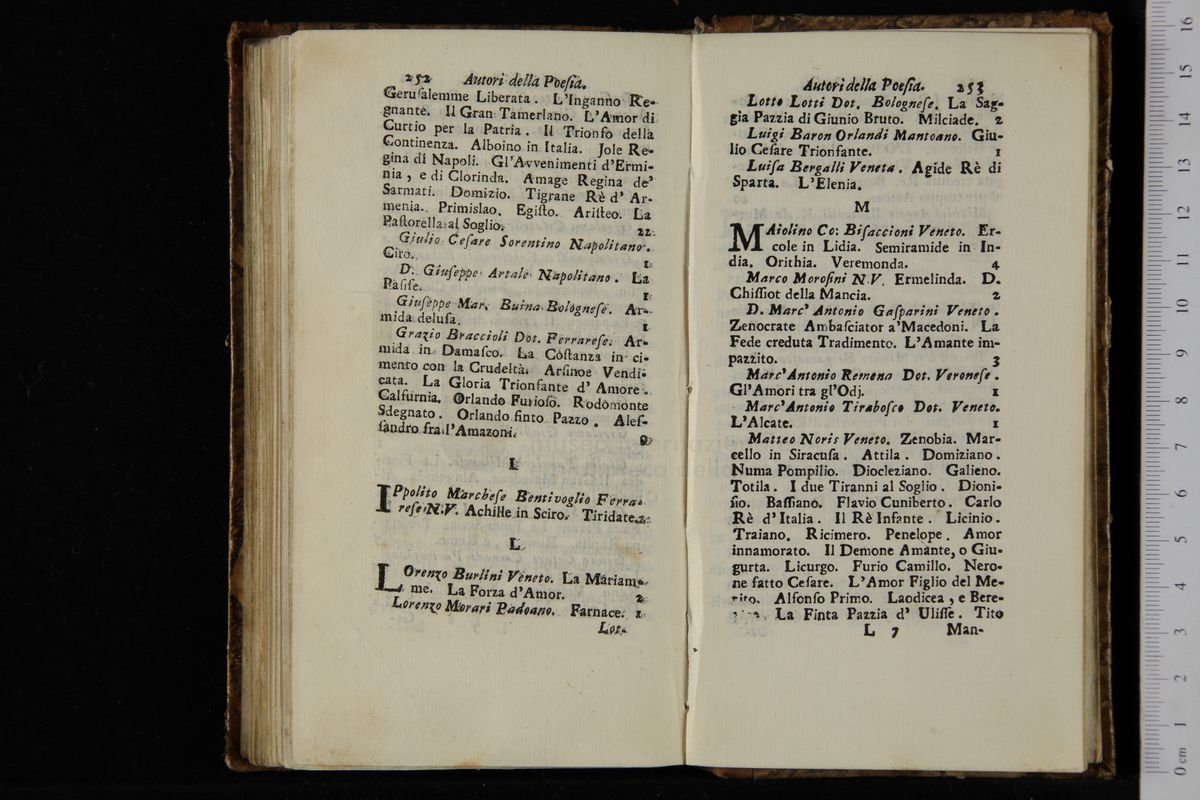 252 Autori della Poeſia.
Geruſalemme Liberata. L'Inganno Re-
gnante. Il Gran Tamerlano. L'Amor di
Curtio per la Patria. Il Trionfo della
Continenza. Alboino in Italia. Jole Re-
gina di Napoli. Gl'Avvenimenti d'Ermi-
nia, e di Clorinda. Amage Regina de'
Sarmati. Domizio. Tigrane Rè d' Ar-
menia. Primislao. Egiſto. Ariſteo. La
Paſtorella al Soglio. 22
Giulio Ceſare Sorentino Napolitano.
Ciro. 1
D. Giuſeppe Artale Napolitano. La
Paſife. 1
Giuſeppe Mar. Buina Bologneſe. Ar-
mida deluſa. 1
Grazio Braccioli Dot. Ferrareſe. Ar-
mida in Damaſco. La Coſtanza in ci-
mento con la Crudeltà. Arſinoe Vendi-
cata. La Gloria Trionfante d' Amore.
Calfurnia. Orlando Furioſo. Rodomonte
Sdegnato. Orlando finto Pazzo. Aleſ-
ſandro fra l'Amazoni. 9
I
IPpolito Marcheſe Bentivoglio Ferra-
reſe N.V. Achille in Sciro. Tiridate. 2
L
LOrenzo Burlini Veneto. La Mariam-
me. La Forza d'Amor. 2
Lorenzo Morari Padoano. Farnace. 1
Lot-
Autori della Poeſia. 253
Lotto Lotti Dot. Bologneſe. La Sag-
gia Pazzia di Giunio Bruto. Milciade. 2
Luigi Baron Orlandi Mantoano. Giu-
lio Ceſare Trionfante. 1
Luiſa Bergalli Veneta. Agide Rè di
Sparta. L'Elenia.
M
MAiolino Co: Biſaccioni Veneto. Er-
cole in Lidia. Semiramide in In-
dia. Orithia. Veremonda. 4
Marco Moroſini N.V. Ermelinda. D.
Chiſſiot della Mancia. 2
D. Marc' Antonio Gaſparini Veneto.
Zenocrate Ambaſciator a'Macedoni. La
Fede creduta Tradimento. L'Amante im-
pazzito. 3
Marc'Antonio Remena Dot. Veroneſe.
Gl'Amori tra gl'Odj. 1
Marc'Antonio Tiraboſco Dot. Veneto.
L'Alcate. 1
Matteo Noris Veneto. Zenobia. Mar-
cello in Siracuſa. Attila. Domiziano.
Numa Pompilio. Diocleziano. Galieno.
Totila. I due Tiranni al Soglio. Dioni-
ſio. Baſſiano. Flavio Cuniberto. Carlo
Rè d'Italia. Il Rè Infante. Licinio.
Traiano. Ricimero. Penelope. Amor
innamorato. Il Demone Amante, o Giu-
gurta. Licurgo. Furio Camillo. Nero-
ne fatto Ceſare. L'Amor Figlio del Me-
rito. Alfonſo Primo. Laodicea, e Bere-
nice. La Finta Pazzia d' Uliſſe. Tito
L 7 Man-
16
15
14
13
12
11
10
9
8
7
6
5
4
3
2
1
0 cm